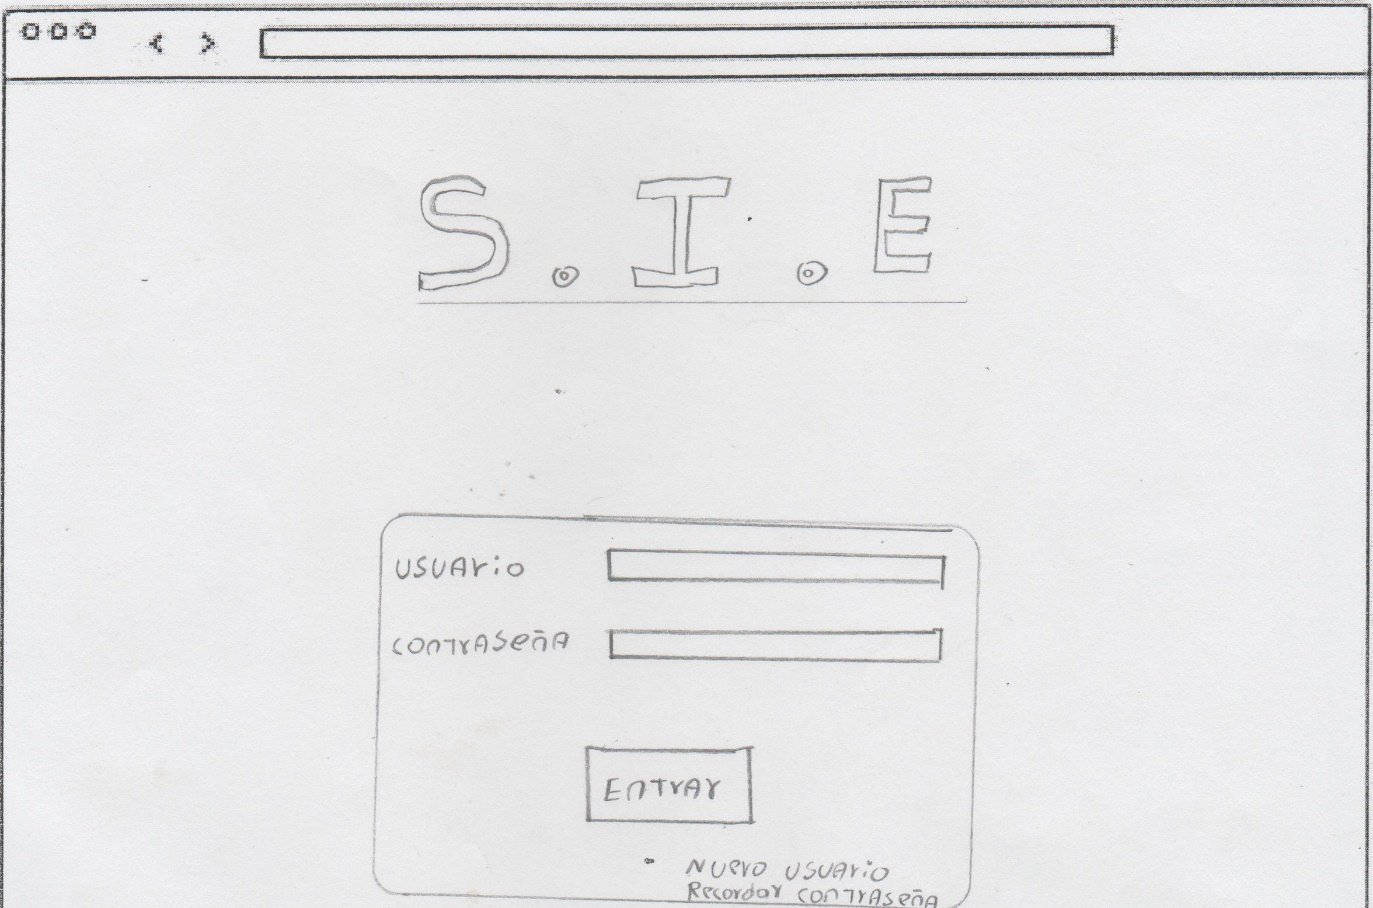 S.I.E
USUARIO
CONTRASEÑA
ENTRAR
NUEVO USUARIO
Recordar CONTRASEÑA